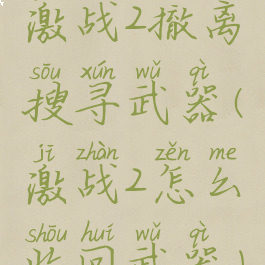 激战2撤离
sōu xún wǔ qì
搜寻武器(
jī zhàn zěn me
激战2怎么
shōu huí wǔ qì
收回武器)